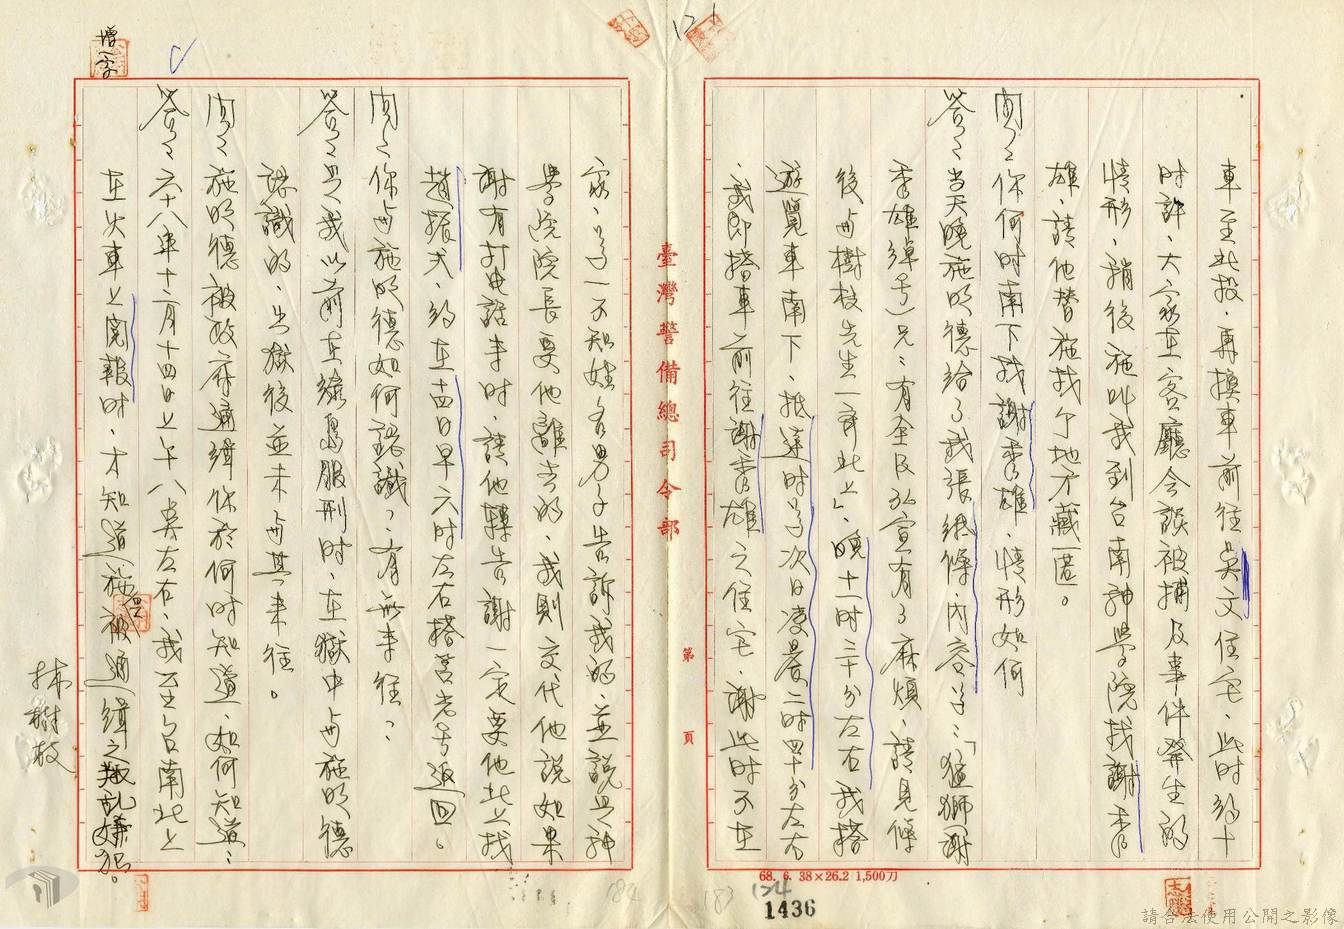 車至北投，再換車前往吳文住宅，此時約十
時許，大家在客廳會談被捕及事件發生的
情形，稍後施叫我到台南神學院找謝秀
雄，請他替施找個地方藏匿。
問：你何時南下找謝秀雄，情形如何
答：當天晚施明德給了我張紙條，內容是：「猛獅謝
秀雄綽號）兄：有全及弘宣有了麻煩，請見條
後與樹枝先生一齊北上」，晚十一時三十分左右我搭
遊覽車南下，抵達時是次日凌晨二時四十分左右
，我即搭車前往謝秀雄之住宅，謝此時不在
家，是一不知姓名男子告訴我的，並說是神
學院院長要他離去的，我則交代他說如果
謝有打電話來時，請他轉告謝一定要他北上找
趙振二，約在十四日早六時左右搭莒光號返回。
問：你與施明德如何認識，有無來往：
答：是我以前在綠島服刑時，在獄中與施明德
認識的，出獄後並未與其來往。
問：施明德被政府通緝你於何時知道，如何知道：
答：六十八年十二月十四日上午八點左右，我至台南北上
在火車上閱報時，才知道施是被通緝之叛亂嫌犯。
增一字
林樹枝
臺灣警備總司令部
第 頁
68. 6. 38×26.2 1,500刀
183
184
174
1436
請合法使用公開之影像